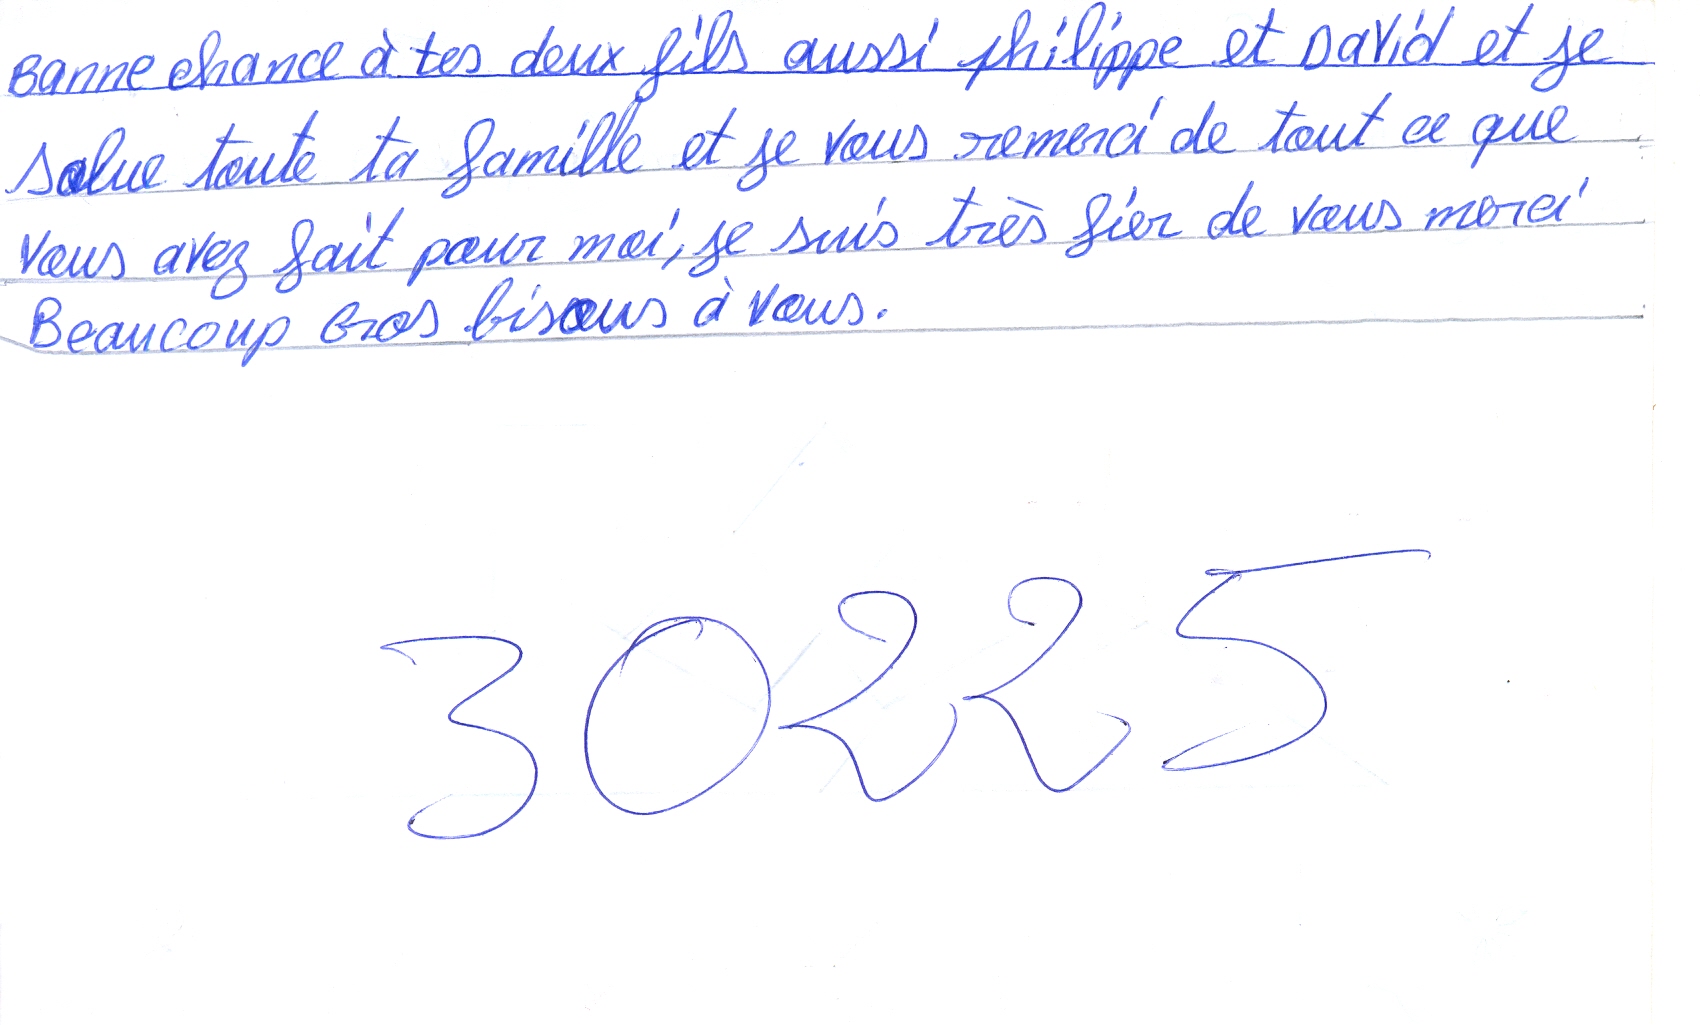 Bonne chance à tes deux fils aussi philippe et David et je
salue toute ta famille et je vous remerci de tout ce que
vous avez fait pour moi, je suis très fier de vous merci
Beaucoup Gros bisous à vous.
30225